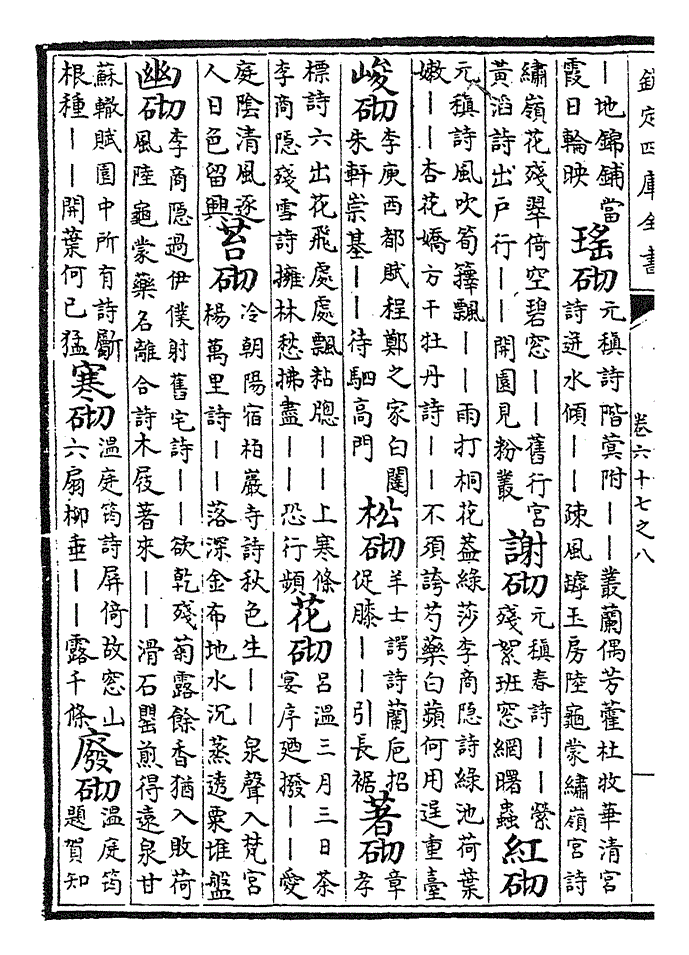 欽定四庫全書 卷六十七之八
丨地錦鋪當霞日輪映 瑤砌 元稹詩階蓂附丨丨叢蘭偶芳藿杜牧華清宮詩迸水傾丨丨疎風罅玉房陸龜蒙繡嶺宮詩
繡嶺花殘翠倚空碧窓丨丨舊行宮黃滔詩出戶行丨丨開園見粉叢 謝砌 元稹春詩丨丨縈殘絮班窓網曙蟲 紅砌
元稹詩風吹筍籜飄丨丨雨打桐花葢綠莎李商隠詩綠池荷葉嫩丨丨杏花嬌方干牡丹詩丨丨不須誇芍藥白蘋何用逞重臺
峻砌 李庾西都賦程鄭之家白闥朱軒崇基丨丨待駟高門 松砌 羊士諤詩蘭巵招促膝丨丨引長裾 著砌 章孝
標詩六出花飛處處飄粘牕丨丨上寒條李商隠殘雪詩擁林愁拂盡丨丨恐行頻 花砌 吕温三月三日茶宴序廼撥丨丨愛
庭陰清風逐人日色留興 苔砌 冷朝陽宿柏巖寺詩秋色生丨丨泉聲入梵宮楊萬里詩丨丨落深金布地水沉蒸透粟堆盤
幽砌 李商隠過伊僕射舊宅詩丨丨欲乾殘菊露餘香猶入敗荷風陸龜蒙藥名離合詩木屐著來丨丨滑石罌煎得遠泉甘
蘇轍賦園中所有詩斸根種丨丨開葉何已猛 寒砌 温庭筠詩屏倚故窓山六扇柳垂丨丨露千條 廢砌 温庭筠題賀知